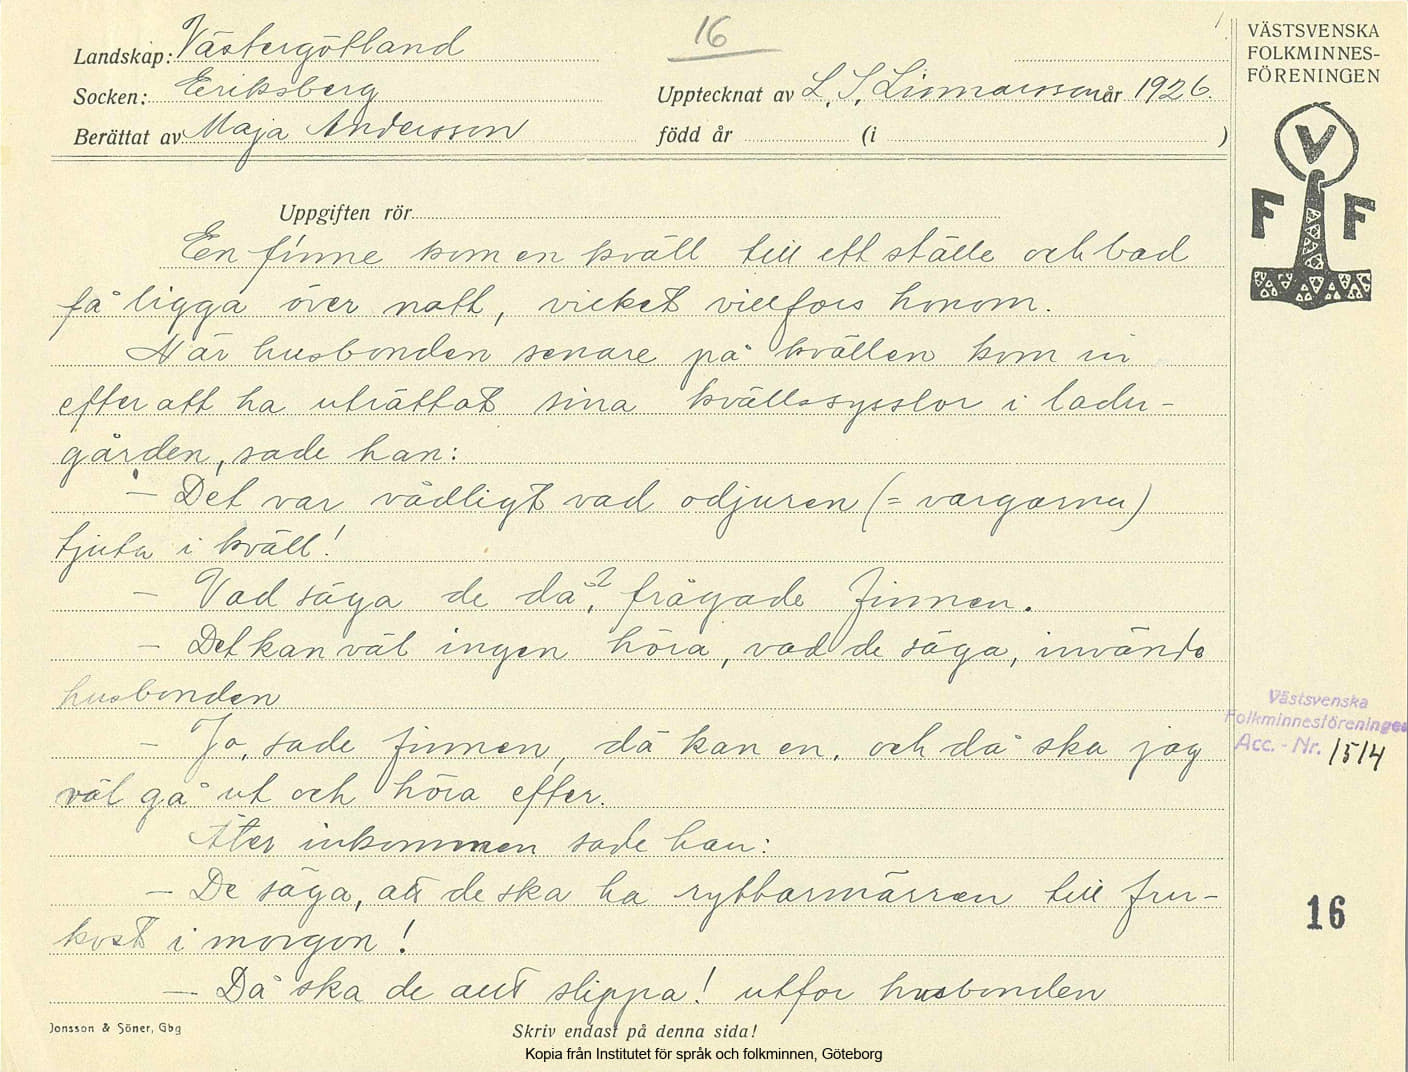 16
1.
Landskap: Västergötland
Socken: Eriksberg
Upptecknat av L. S. Linnarsson år 1926.
Berättat av Maja Andersson
född år (i )
VÄSTSVENSKA
FOLKMINNES-
FÖRENINGEN
V
F F
Uppgiften rör
En finne kom en kväll till ett ställe och bad
få ligga över natt, vilket villfors honom.
När husbonden senare på kvällen kom in
efter att ha uträttat sina kvällssysslor i ladu-
gården, sade han:
– Det var vådligt vad odjuren (= vargarna)
tjuta i kväll!
– Vad säga de då?, frågade finnen.
– Det kan väl ingen höra, vad de säga, invände
husbonden
– Jo, sade finnen, då kan en, och då ska jag
väl gå ut och höra efter.
Åter inkommen sade han:
– De säga, att de ska ha ryttarmärren till fru-
kost i morgon!
– Då ska de allt slippa! utfor husbonden
Västsvenska
Folkminnesföreningen
Acc. - Nr. 1514
16
Jonsson & Söner, Gbg
Skriv endast på denna sida!
Kopia från Institutet för språk och folkminnen, Göteborg